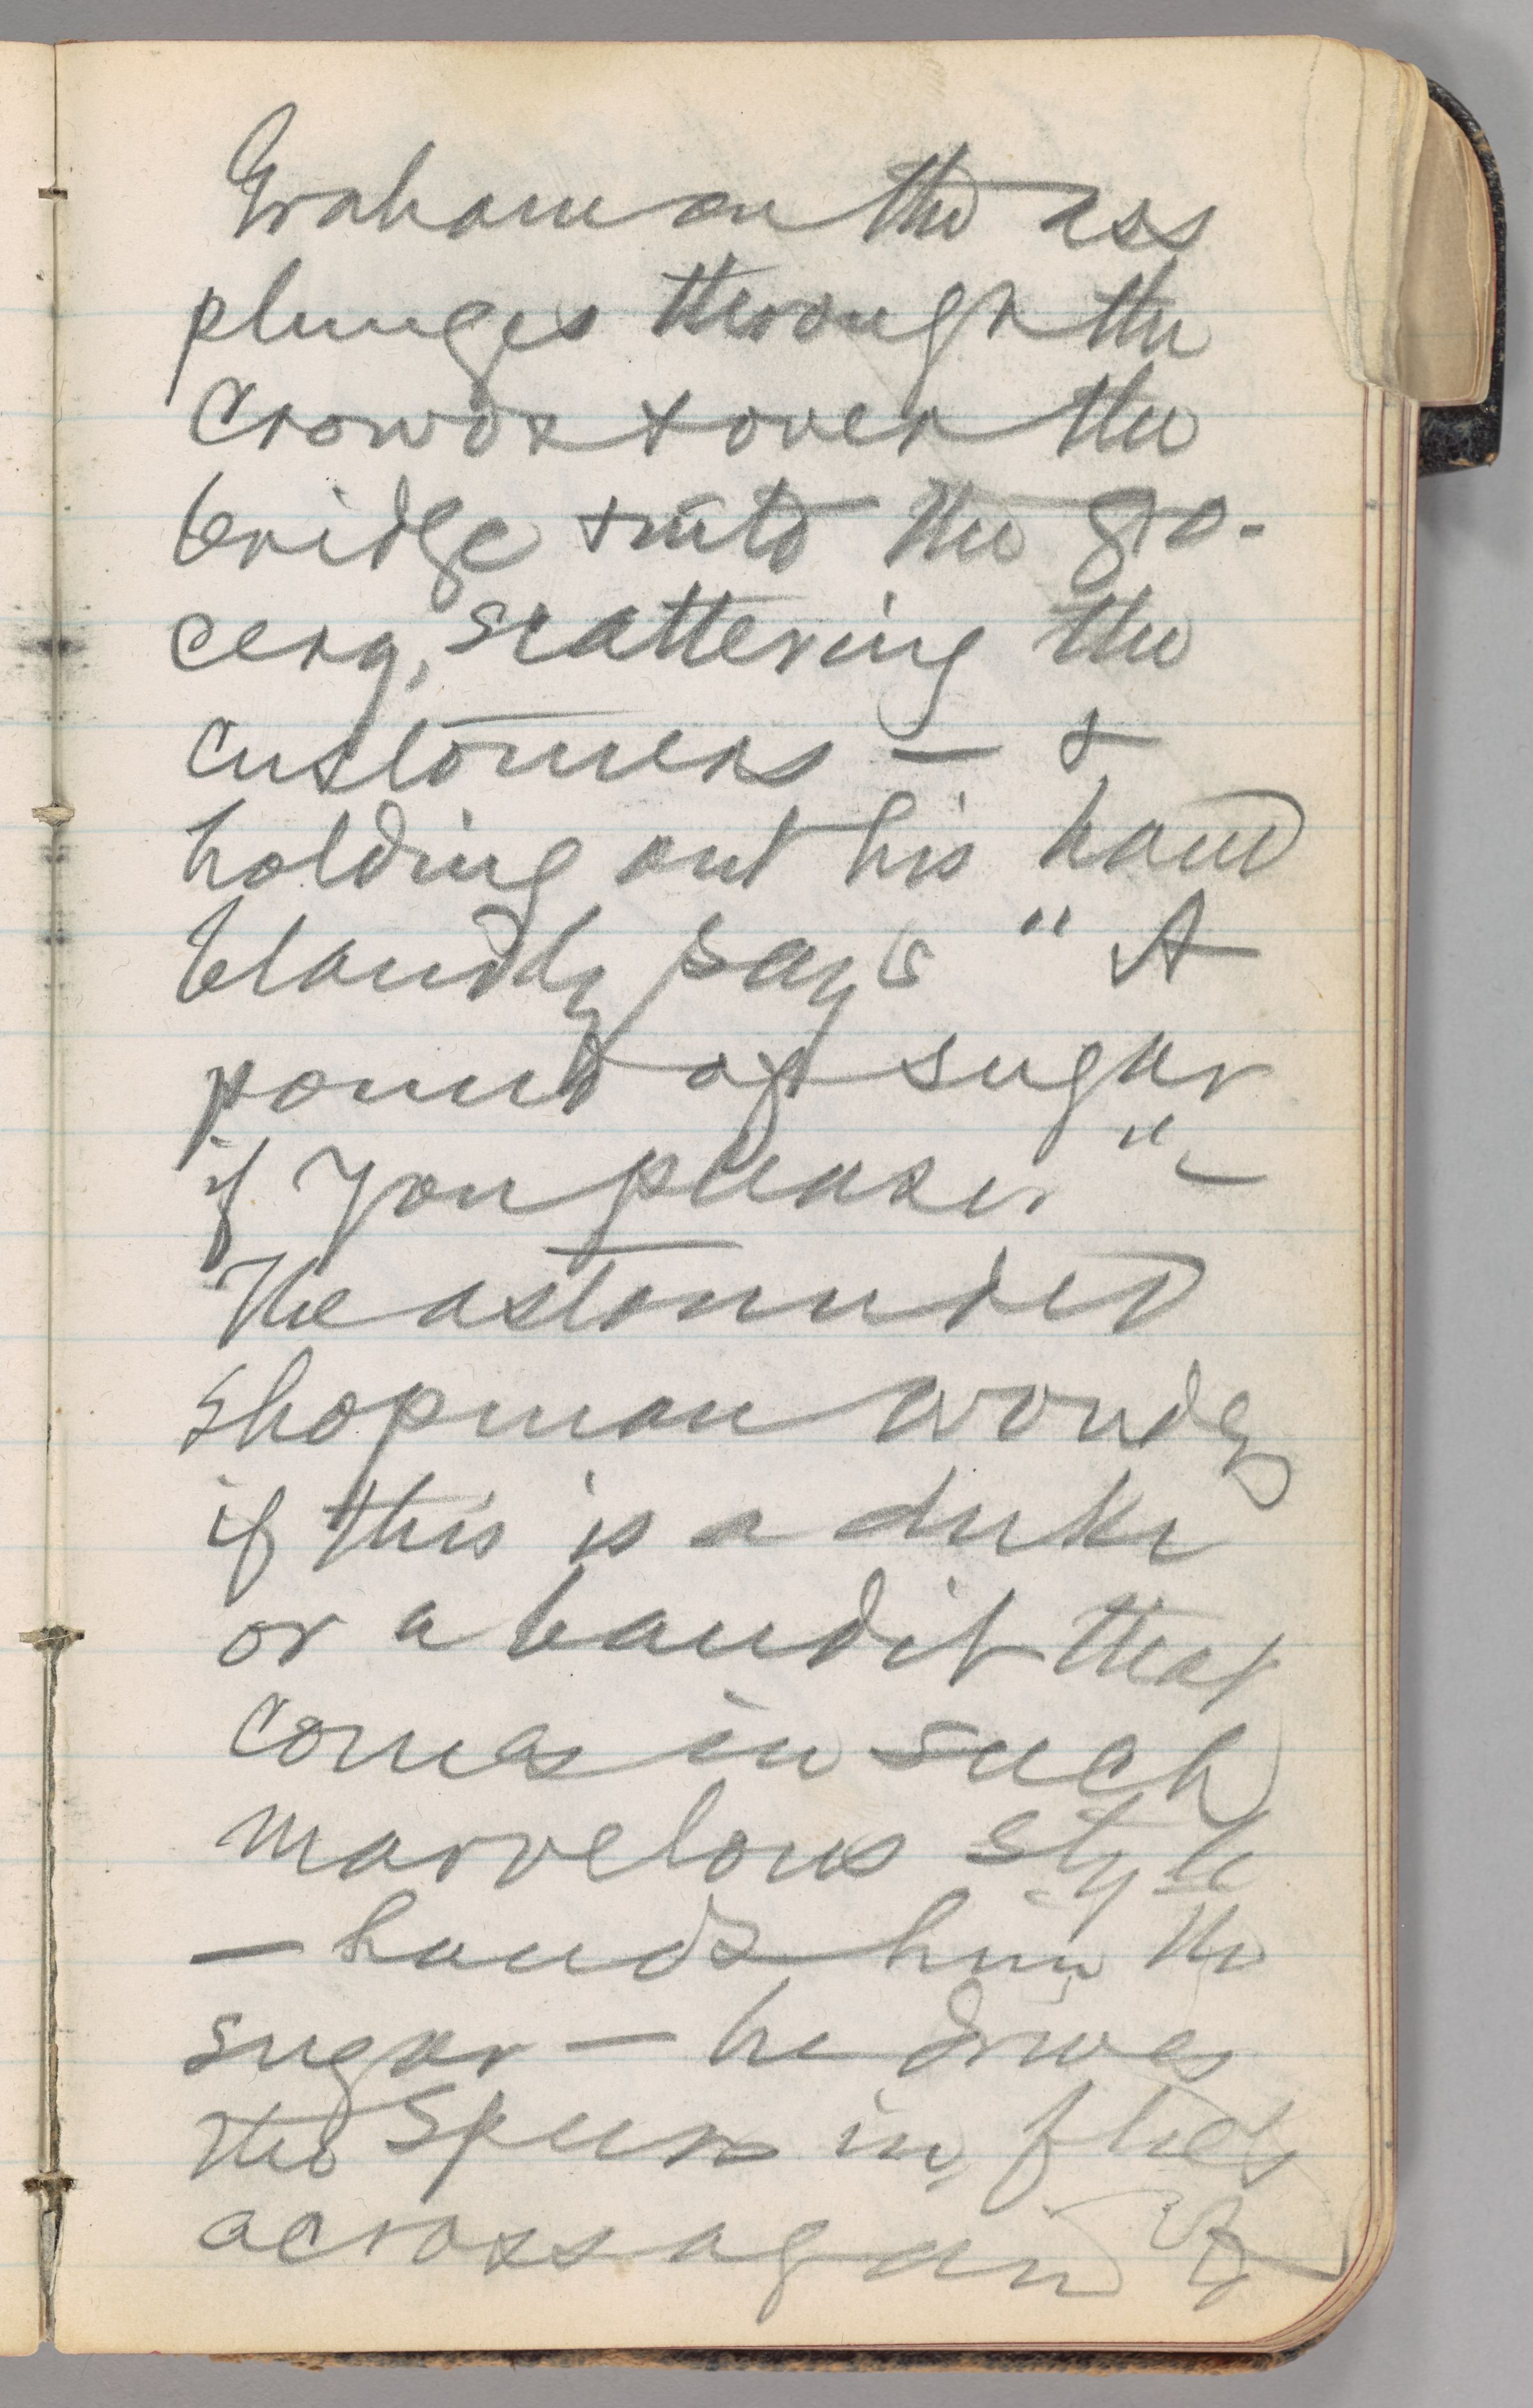 Graham on the ass
plunges through the
crowds & over the
bridge & into the gro-
cery, scattering the
customers — &
holding out his hand
blandly says "A
pound of sugar
if you please" —
The astounded
shopman wonders
if this is a duke
or a bandit that
comes in such
marvelous style
— hands him the
sugar — he drives
the spurs in, flies
across again &